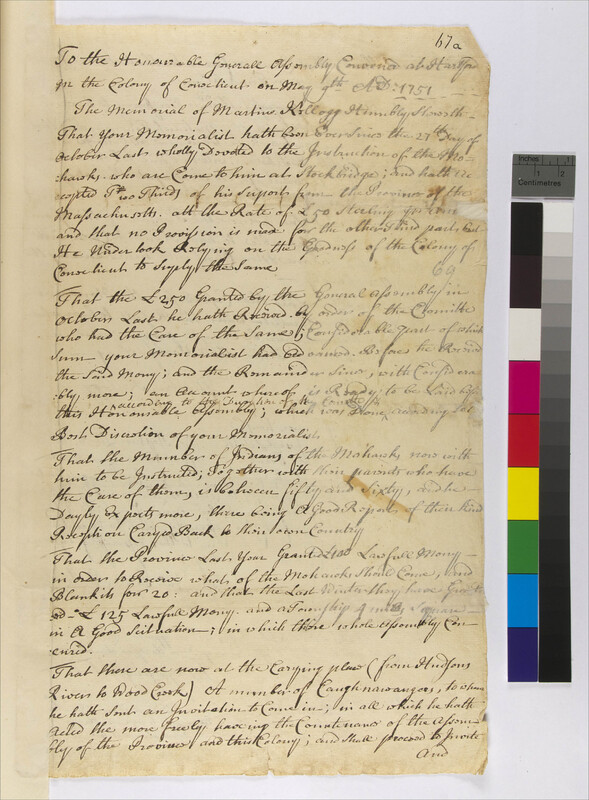 67a
To the Honourable Generall Assembly Convened at Hartford
in the Colony of Conecticut on May 9th AD: 1751
The Memorial of Martin Kellogg Humbly Sheweth
That Your Memorialist hath been Ever Since the 27th Day of
October Last wholly Devoted to the Instruction of the Mo-
hawks who are Come to him at Stockbridge; and hath Re
cepted Two Thirds of his Suport from the Province of the
Massachusetts att the Rate of £50 Sterling
and that no Provission is made for the other Third part, but
He Undertook Relying on the Goodness of the Colony of
Conecticut to Suply the Same
69
That the £250 Granted by the General Assembly in
October Last he hath Received by order of the Comitte
who had the Care of the Same; Considerable part of which
Sum your Memorialist had advanced Before he Received
the Said Mony; and the Remainder Since, with Considera
bly more; an account whereof is Ready to be Laid before
according to the Direction of the Comitte
this Honourable Assembly; which was Done, according to
Best Discretion of your Memorialist
That the Number of Indians of the Mahawks now with
him to be Instructed; Together with their parents who have
the Care of them, is between fifty and Sixty, and he
Dayly Expects more, there being A Good Report of their kind
Reception Caryed Back to their own Country
That the Province Last Year Granted £100 Lawfull Mony
in order to Receive what of the Mohawks Should Come, and
Blankits for 20: and that the Last Winter they have Grant
ed £125 Lawfull Mony and a Township 9 miles Square
in A Good Scituation; in which there whole assembly Con
cured.
That there are now at the Carying place (from Hudsons
River to Wood Creek) A number of Caughnawaugas, to whom
he hath Sent an Invitation to Come in; in all which he hath
acted the more freely having the Countenance of the Assem
bly of the Province and this Colony; and Shall proceed to Invite
And
Inches 1
Centimetres 2